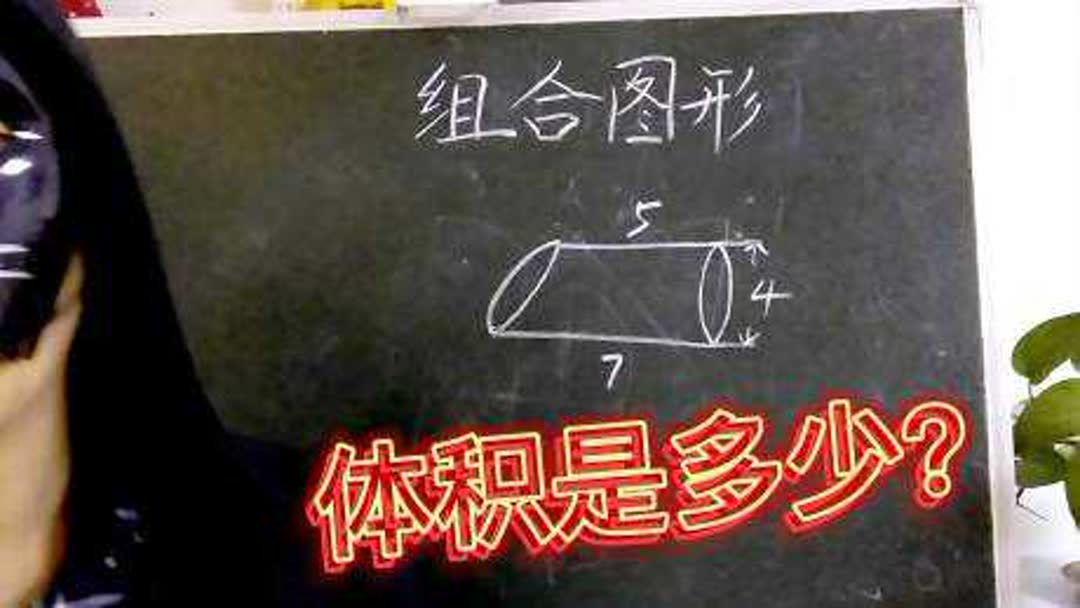 组合图形
5
4
7
体积是多少?